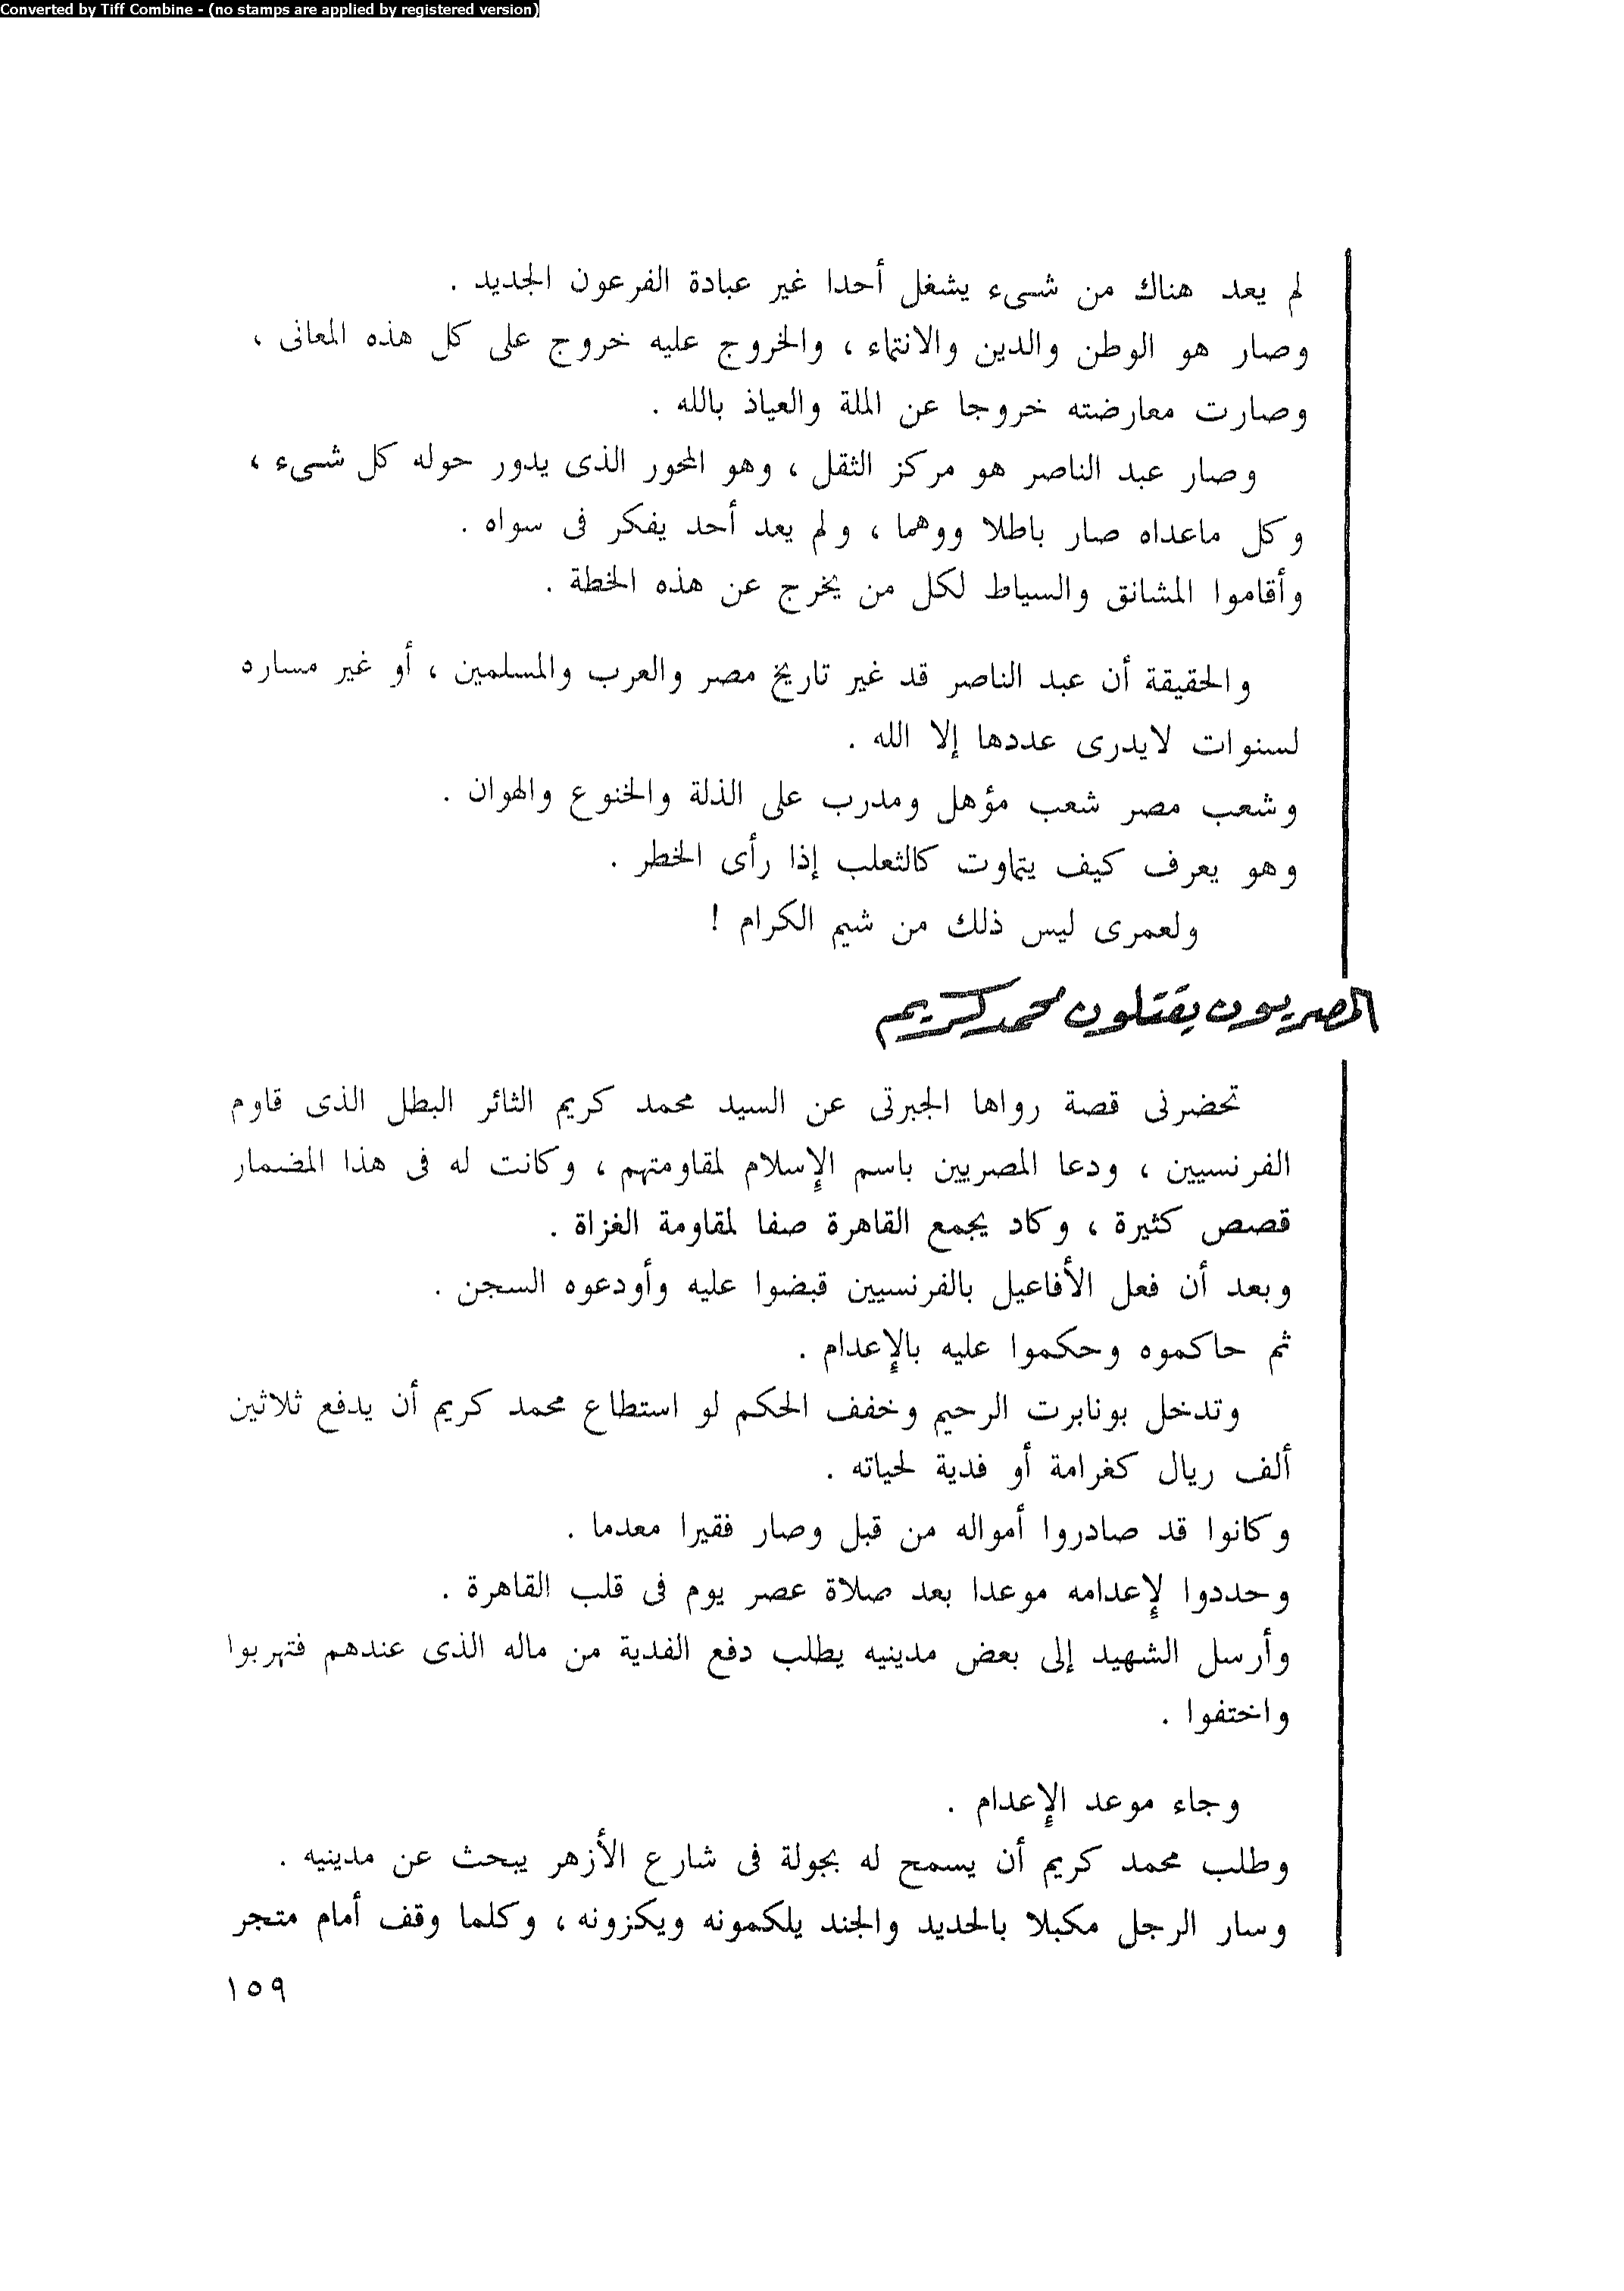 Converted by Tiff Combine - (no stamps are applied by registered version)
لم يعد هناك من شىء يشغل أحدا غير عبادة الفرعون الجديد .
وصار هو الوطن والدين والانتماء ، والخروج عليه خروج على كل هذه المعانى ،
وصارت معارضته خروجا عن الملة والعياذ بالله .
وصار عبد الناصر هو مركز الثقل ، وهو المحور الذى يدور حوله كل شىء ،
وكل ماعداه صار باطلا ووهما ، ولم يعد أحد يفكر فى سواه .
وأقاموا المشانق والسياط لكل من يخرج عن هذه الخطة .
والحقيقة أن عبد الناصر قد غير تاريخ مصر والعرب والمسلمين ، أو غير مساره
لسنوات لايدرى عددها إلا الله .
وشعب مصر شعب مؤهل ومدرب على الذلة والخنوع والهوان .
وهو يعرف كيف يتماوت كالثعلب إذا رأى الخطر .
ولعمرى ليس ذلك من شيم الكرام !
المصريون يقتلون محمد كريم
تحضرنى قصة رواها الجبرتى عن السيد محمد كريم الثائر البطل الذى قاوم
الفرنسيين ، ودعا المصريين باسم الإسلام لمقاومتهم ، وكانت له فى هذا المضمار
قصص كثيرة ، وكاد يجمع القاهرة صفا لمقاومة الغزاة .
وبعد أن فعل الأفاعيل بالفرنسيين قبضوا عليه وأودعوه السجن .
ثم حاكموه وحكموا عليه بالإعدام .
وتدخل بونابرت الرحيم وخفف الحكم لو استطاع محمد كريم أن يدفع ثلاثين
ألف ريال كغرامة أو فدية لحياته .
وكانوا قد صادروا أمواله من قبل وصار فقيرا معدما .
وحددوا لإعدامه موعدا بعد صلاة عصر يوم فى قلب القاهرة .
وأرسل الشهيد إلى بعض مدينيه يطلب دفع الفدية من ماله الذى عندهم فتهربوا
واختفوا .
وجاء موعد الإعدام .
وطلب محمد كريم أن يسمح له بجولة فى شارع الأزهر يبحث عن مدينيه .
وسار الرجل مكبلا بالحديد والجند يلكمونه ويكزونه ، وكلما وقف أمام متجر
١٥٩